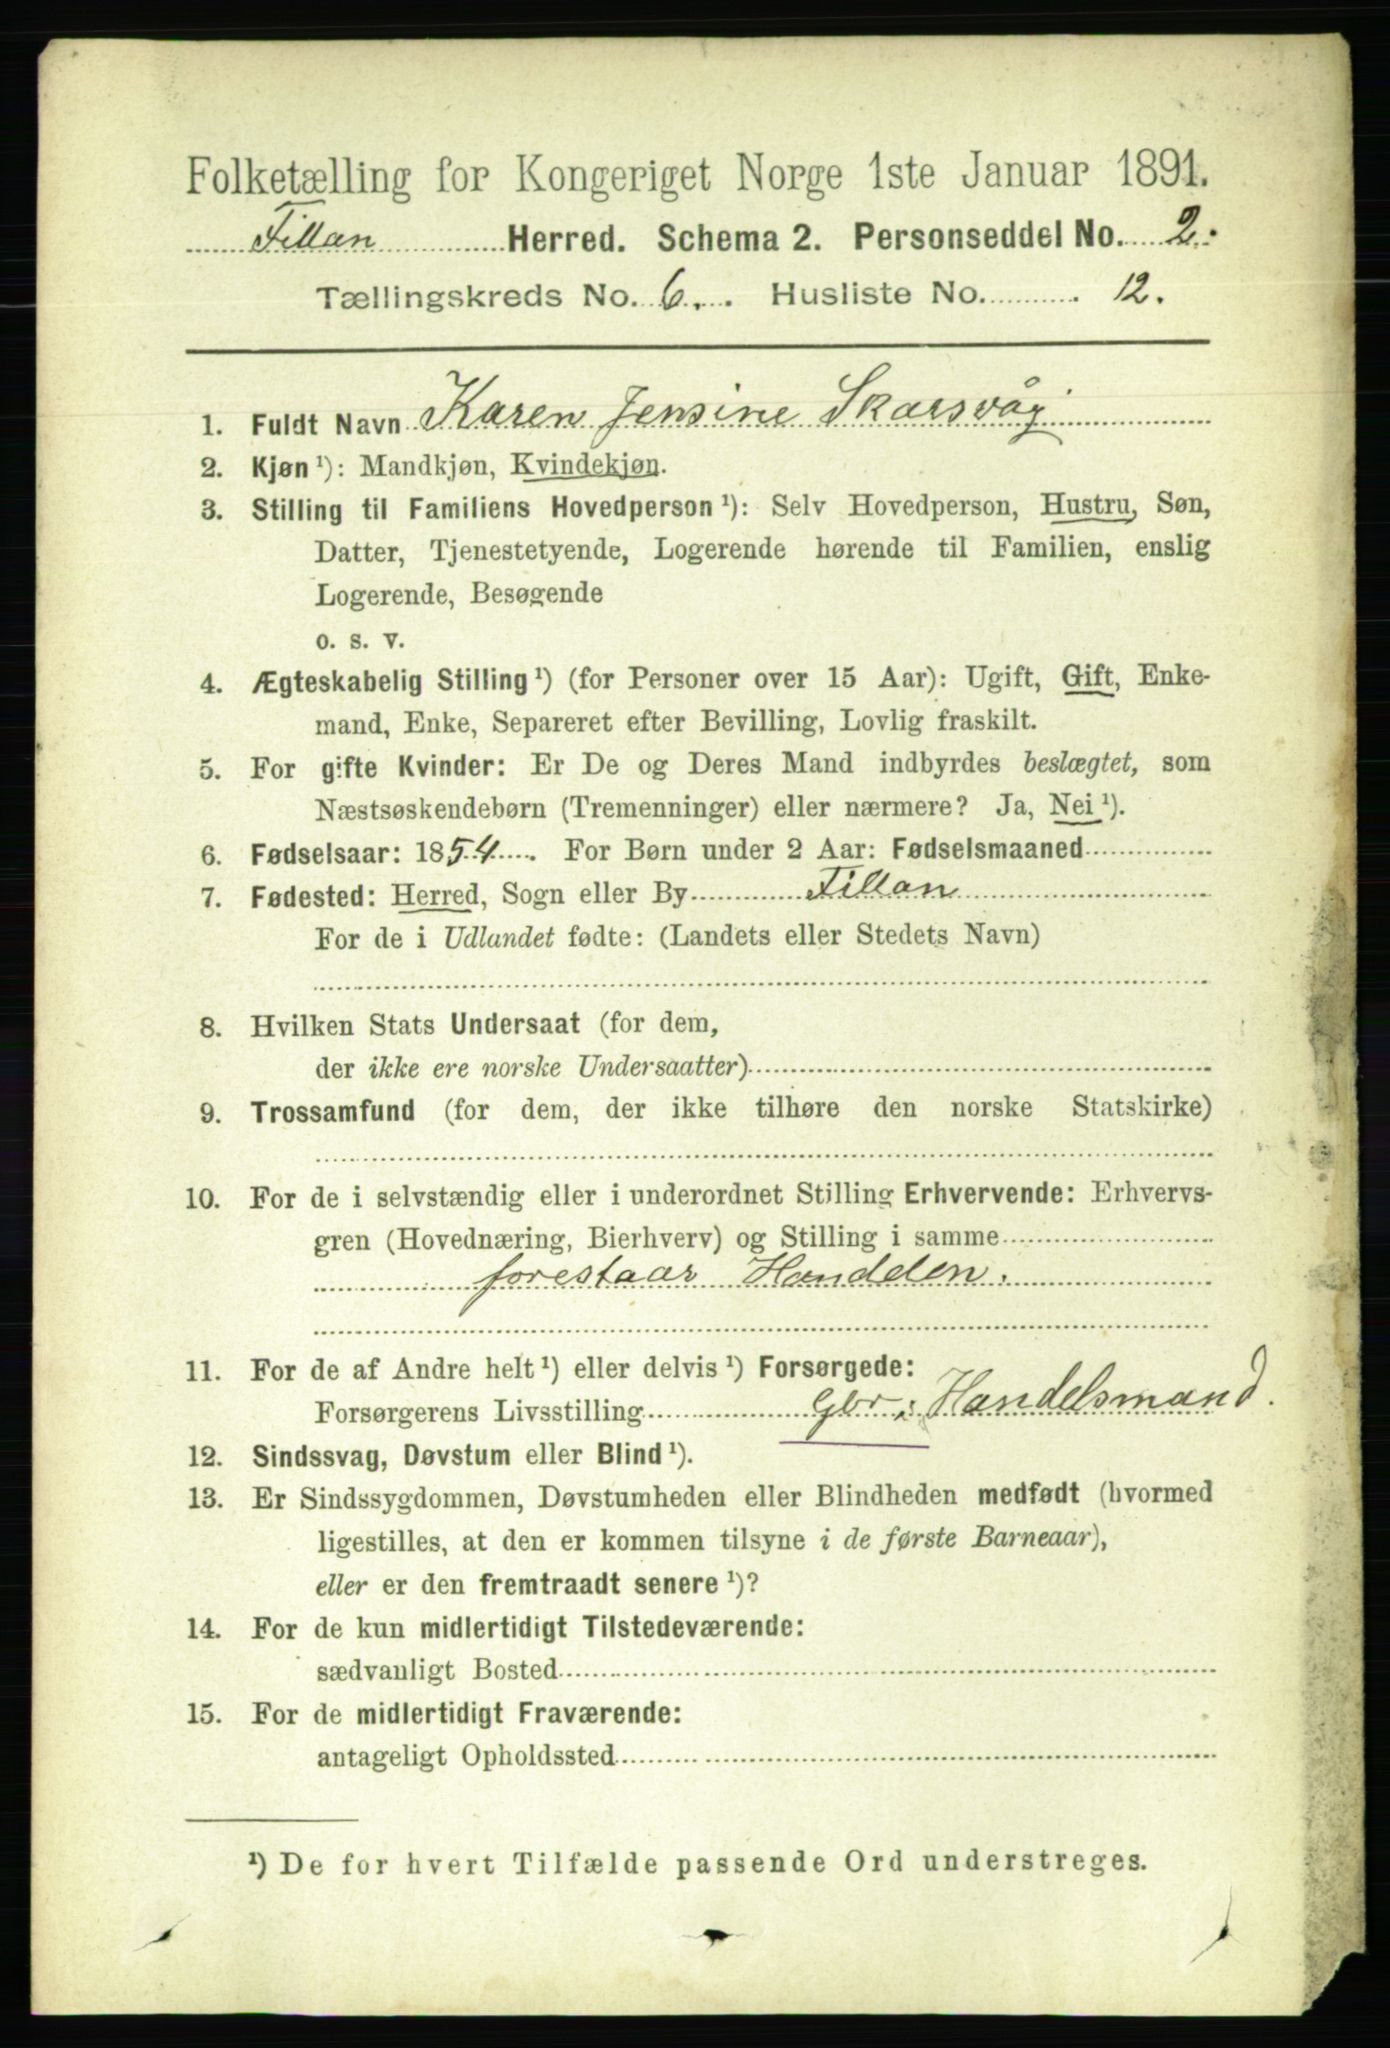 Folketælling for Kongeriget Norge 1ste Januar 1891.
Fillan Herred. Schema 2. Personseddel No. 2.
Tællingskreds No. 6. Husliste No. 12.
1. Fuldt Navn Karen Jensine Skarsvåg
2. Kjøn ¹): Mandkjøn, Kvindekjøn.
3. Stilling til Familiens Hovedperson ¹): Selv Hovedperson, Hustru, Søn,
Datter, Tjenestetyende, Logerende hørende til Familien, enslig
Logerende, Besøgende
o. s. v.
4. Ægteskabelig Stilling ¹) (for Personer over 15 Aar): Ugift, Gift, Enke-
mand, Enke, Separeret efter Bevilling, Lovlig fraskilt.
5. For gifte Kvinder: Er De og Deres Mand indbyrdes beslægtet, som
Næstsøskendebørn (Tremenninger) eller nærmere? Ja, Nei ¹).
6. Fødselsaar: 1854. For Børn under 2 Aar: Fødselsmaaned
7. Fødested: Herred, Sogn eller By Fillan
For de i Udlandet fødte: (Landets eller Stedets Navn)
8. Hvilken Stats Undersaat (for dem,
der ikke ere norske Undersaatter)
9. Trossamfund (for dem, der ikke tilhøre den norske Statskirke)
10. For de i selvstændig eller i underordnet Stilling Erhvervende: Erhvervs-
gren (Hovednæring, Bierhverv) og Stilling i samme
forestaar Handelen.
11. For de af Andre helt ¹) eller delvis ¹) Forsørgede:
Forsørgerens Livsstilling Gbr. Handelsmand.
12. Sindssvag, Døvstum eller Blind ¹).
13. Er Sindssygdommen, Døvstumheden eller Blindheden medfødt (hvormed
ligestilles, at den er kommen tilsyne i de første Barneaar),
eller er den fremtraadt senere ¹)?
14. For de kun midlertidigt Tilstedeværende:
sædvanligt Bosted
15. For de midlertidigt Fraværende:
antageligt Opholdssted
¹) De for hvert Tilfælde passende Ord understreges.